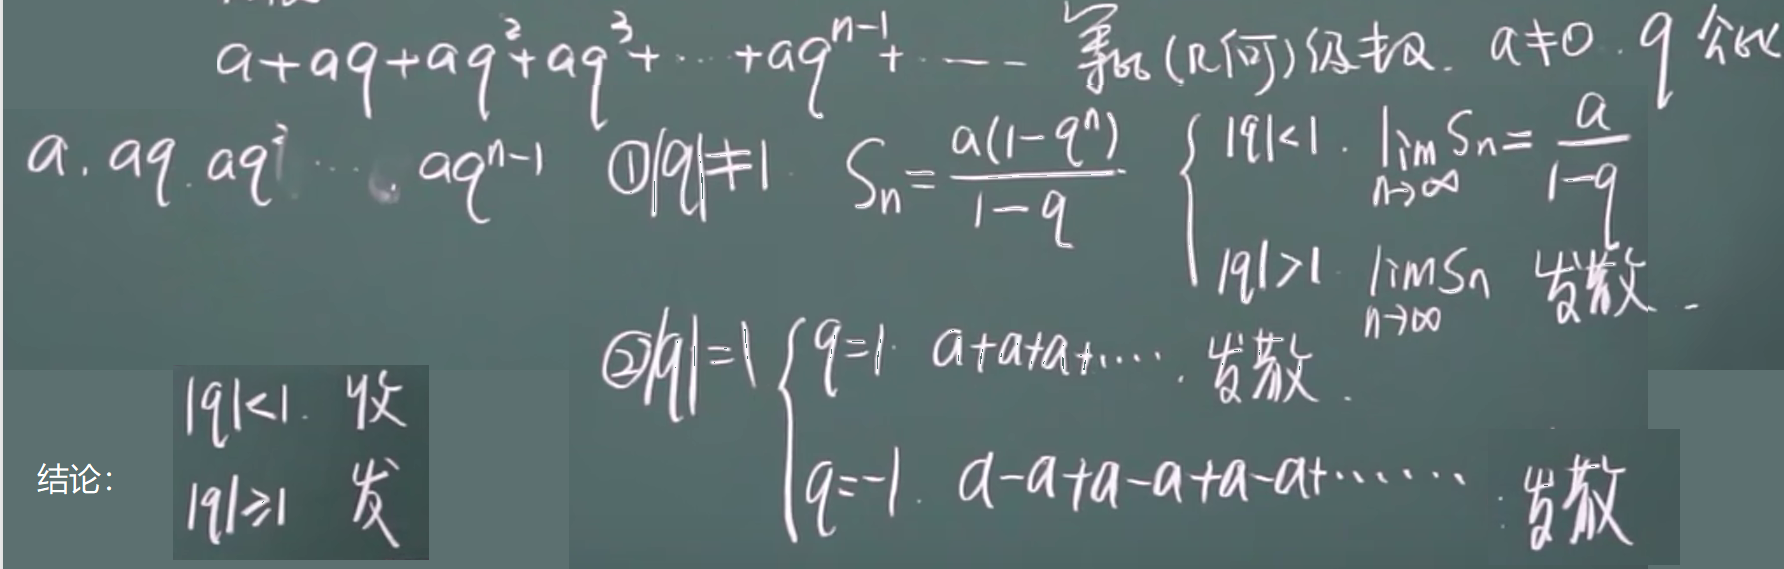 a+aq+aq²+aq³+…+aqⁿ⁻¹+…… 等比(几何)级数. a≠0. q 公比
a. aq. aq² …. aqⁿ⁻¹ ①|q|≠1. Sn=a(1-qⁿ)/(1-q) { |q|<1. lim n→∞ Sn=a/(1-q)
|q|>1. lim n→∞ Sn 发散.
②|q|=1 { q=1. a+a+a+…… 发散.
q=-1. a-a+a-a+a-a+…… 发散
结论：
|q|<1. 收
|q|≥1 发